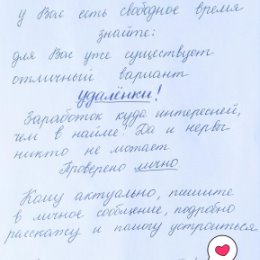 у Вас есть свободное время
знайте:
для Вас уже существует
отличный вариант
удалёнки!
Заработок куда интересней,
чем в найме! Да и нервы
никто не мотает
Проверено лично
Кому актуально, пишите
в личное сообщение, подробно
расскажу и помогу устроиться